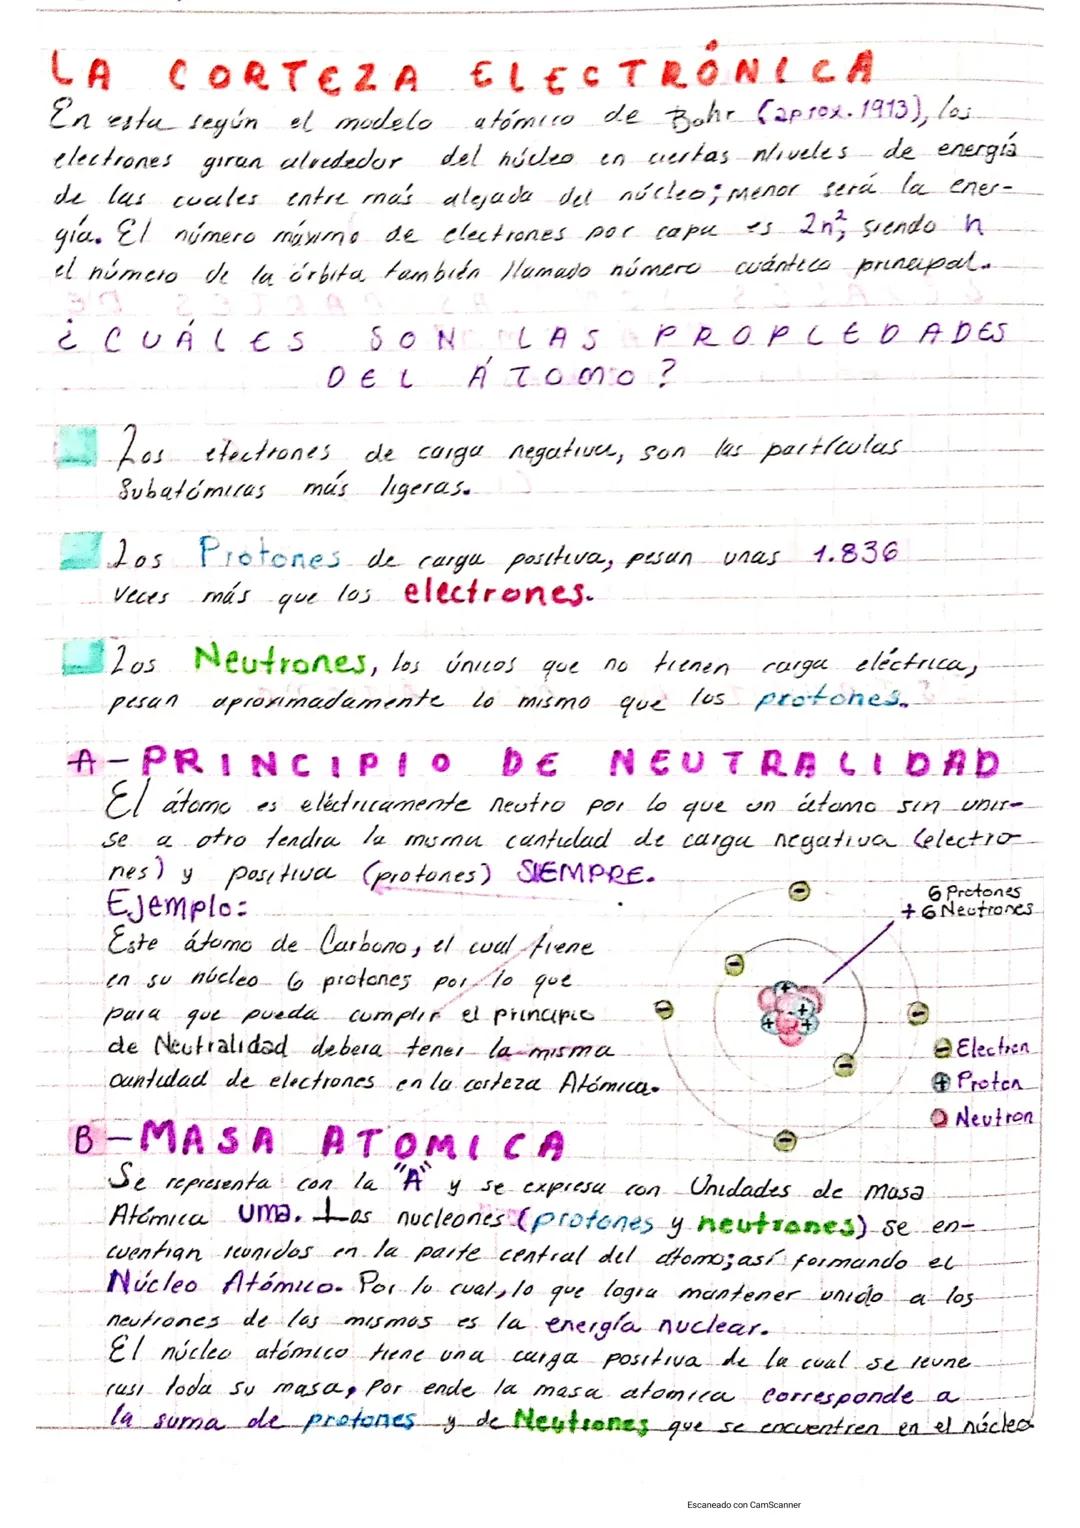 LA CORTEZA ELECTRÓNICA
En esta según el modelo atómico de Bohr (aprox. 1913), los
electrones giran alrededor del núcleo en ciertas niveles de energía
de las cuales entre más alejada del núcleo; menor será la ener-
gía. El número máximo de electrones por capa es 2n², siendo n
el número de la órbita también llamado número cuántico principal.
¿CUÁLES SON LAS PROPIEDADES
DEL ÁTOMO?
Los electrones de carga negativa, son las partículas
Subatómicas más ligeras.
Los Protones de carga positiva, pesan unas 1.836
veces más que los electrones.
Los Neutrones, los únicos que no tienen carga eléctrica,
pesan aproximadamente lo mismo que los protones.
A-PRINCIPIO DE NEUTRALIDAD
El átomo es eléctricamente neutro por lo que un átomo sin unir-
se a otro tendra la misma cantidad de carga negativa (electro-
nes) y positiva (protones) SIEMPRE.
Ejemplo:
Este átomo de Carbono, el cual tiene
en su núcleo 6 protones por lo que
para que pueda cumplir el principio
de Neutralidad debera tener la misma
cantidad de electrones en la corteza Atómica.
6 Protones
+ 6 Neutrones
- Electron
+ Proton
Neutron
B-MASA ATOMICA
Se representa con la "A" y se expresa con Unidades de Masa
Atómica uma. Los nucleones (protones y neutrones) se en-
cuentran reunidos en la parte central del átomo; así formando el
Núcleo Atómico. Por lo cual, lo que logra mantener unido a los
neutrones de los mismos es la energía nuclear.
El núcleo atómico tiene una carga positiva de la cual se reune
casi toda su masa, Por ende la masa atomica corresponde a
la suma de protones y de Neutrones que se encuentren en el núcleo
Escaneado con CamScanner